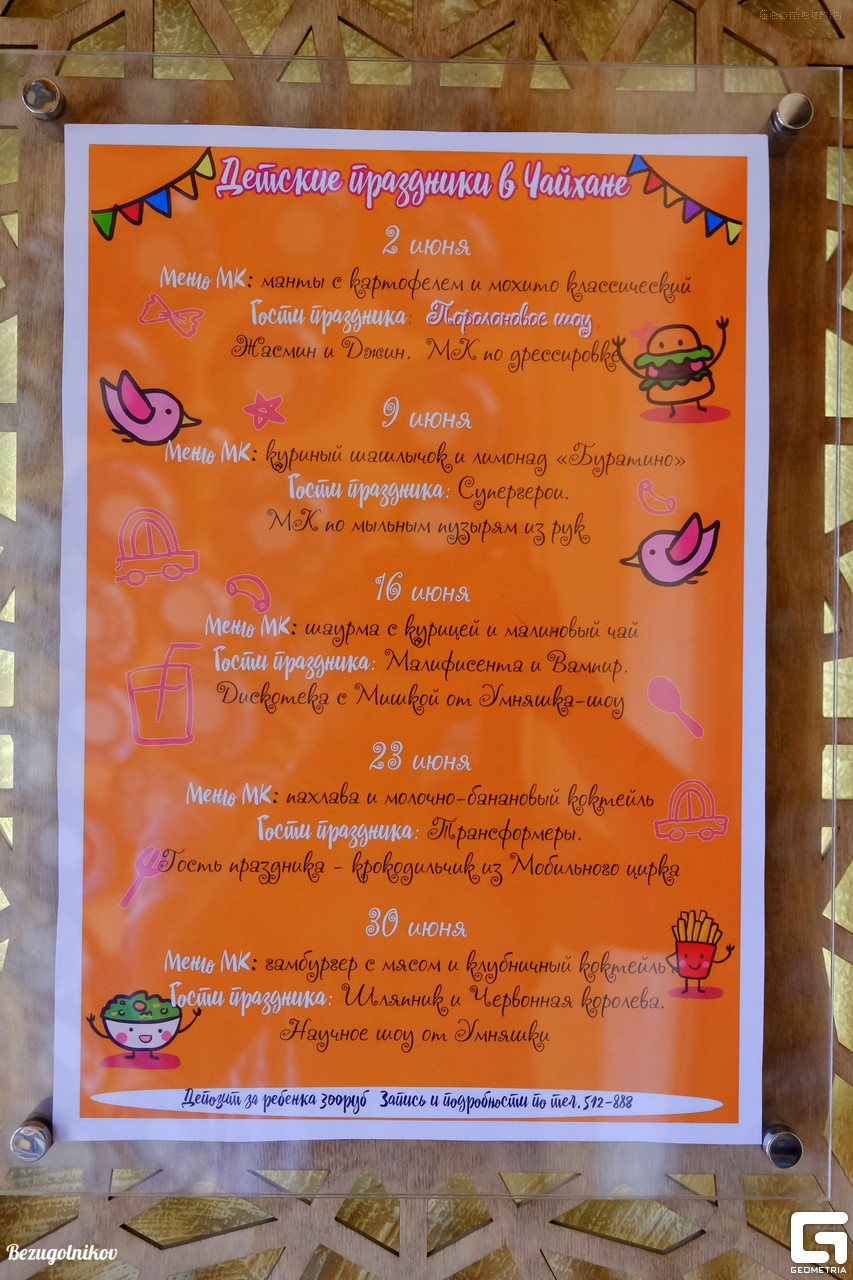 Geometria
Детские праздники в Чайхане
2 июня
Меню МК: манты с картофелем и мохито классический
Гости праздника: Поролоновое шоу.
Жасмин и Джин. МК по дрессировке
9 июня
Меню МК: куриный шашлычок и лимонад «Буратино»
Гости праздника: Супергерои.
МК по мыльным пузырям из рук
16 июня
Меню МК: шаурма с курицей и малиновый чай
Гости праздника: Малифисента и Вампир.
Дискотека с Мишкой от Умняшка-шоу
23 июня
Меню МК: пахлава и молочно-банановый коктейль
Гости праздника: Трансформеры.
Гость праздника - крокодильчик из Мобильного цирка
30 июня
Меню МК: гамбургер с мясом и клубничный коктейль
Гости праздника: Шляпник и Червонная королева.
Научное шоу от Умняшки
Депозит за ребенка 300руб Запись и подробности по тел. 512-888
Bezugolnikov
GEOMETRIA